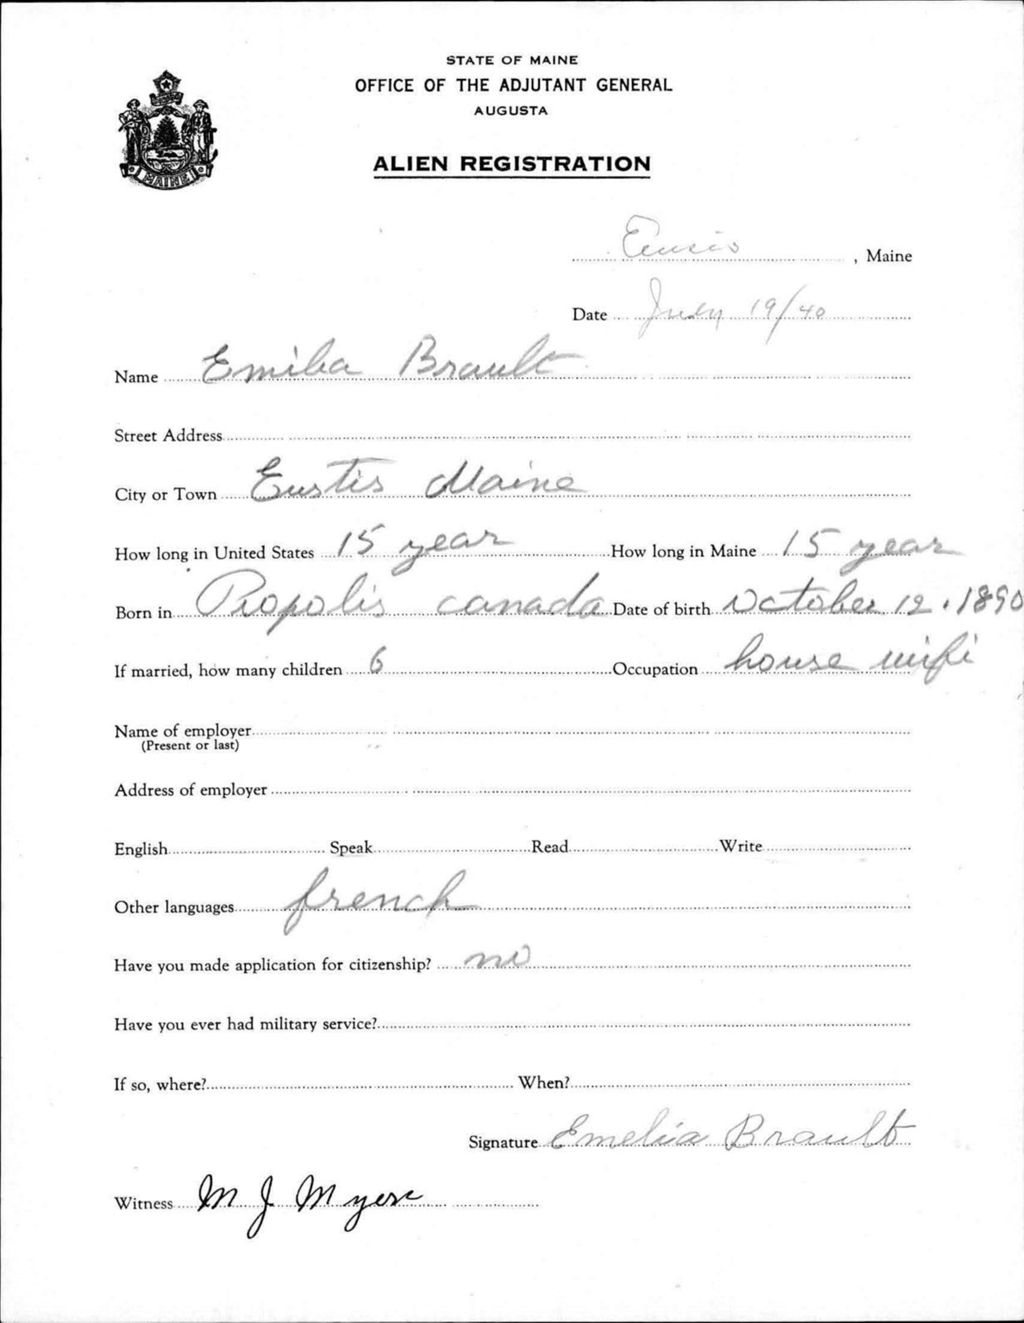 STATE OF MAINE
OFFICE OF THE ADJUTANT GENERAL
AUGUSTA
ALIEN REGISTRATION
MAINE
, Maine
Date July 19/40
Name Emilia Brault
Street Address
City or Town Eustis Maine
How long in United States 15 year How long in Maine 15 year
Born in Propolis canada Date of birth October 12, 1890
If married, how many children 6 Occupation house wife
Name of employer
(Present or last)
Address of employer
English Speak Read Write
Other languages french
Have you made application for citizenship? no
Have you ever had military service?
If so, where? When?
Signature Emelia Brault
Witness M J Myers